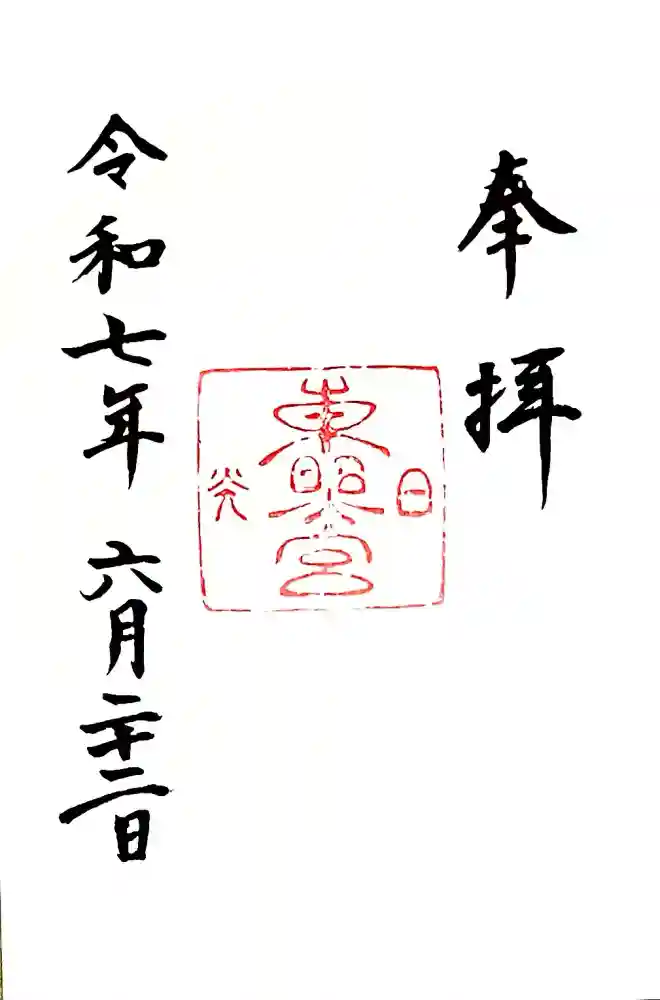 奉拝
日
東照宮
光
令和七年 六月二十二日